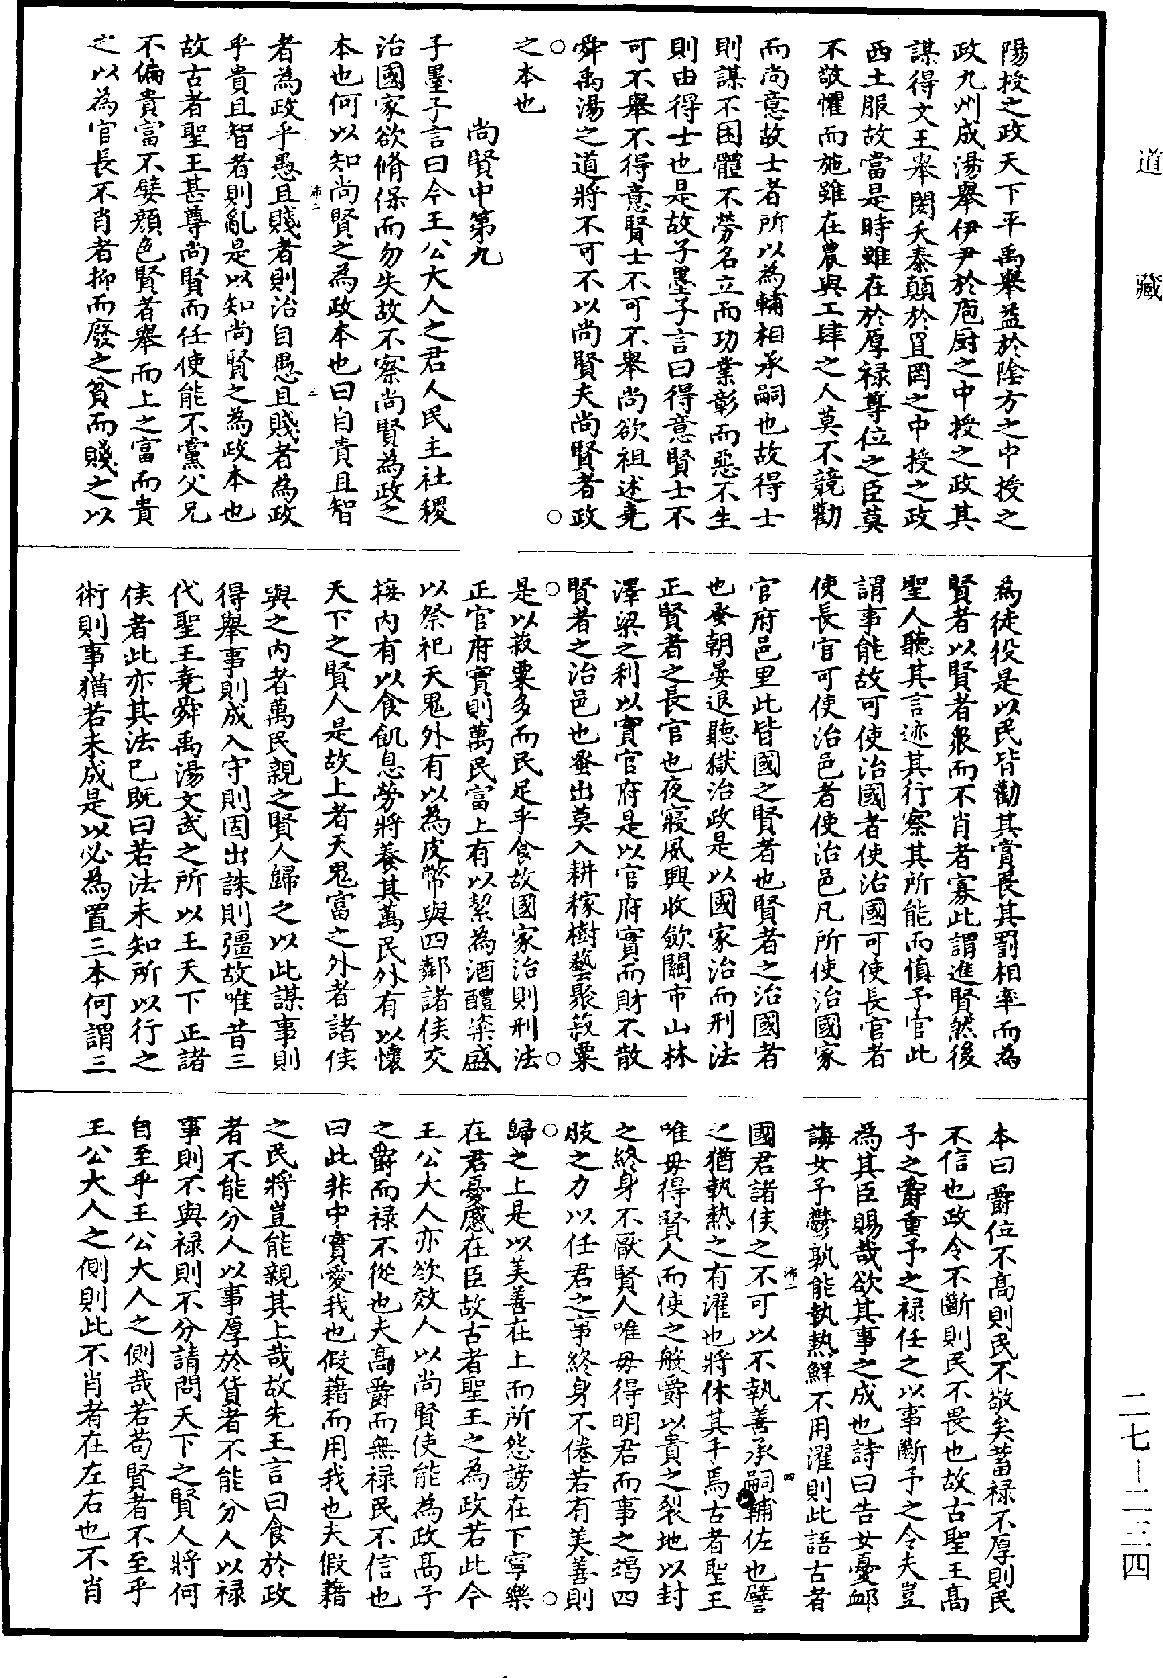 道藏
陽授之政天下平禹舉益於陰方之中授之
政九州成湯舉伊尹於庖厨之中授之政其
謀得文王舉閎夭泰顛於罝罔之中授之政
西土服故當是時雖在於厚禄尊位之臣莫
不敬懼而施雖在農與工肆之人莫不競勸
而尚意故士者所以為輔相承嗣也故得士
則謀不困體不勞名立而功業彰而惡不生
則由得士也是故子墨子言曰得意賢士不
可不舉不得意賢士不可不舉尚欲祖述堯
舜禹湯之道將不可不以尚賢夫尚賢者政
之本也
尚賢中第九
子墨子言曰今王公大人之君人民主社稷
治國家欲脩保而勿失故不察尚賢為政之
本也何以知尚賢之為政本也曰自貴且智
者為政乎愚且賤者則治自愚且賤者為政
乎貴且智者則亂是以知尚賢之為政本也
故古者聖王甚尊尚賢而任使能不黨父兄
不偏貴富不嬖顏色賢者舉而上之富而貴
之以為官長不肖者抑而廢之貧而賤之以
為徒役是以民皆勸其賞畏其罰相率而為
賢者以賢者衆而不肖者寡此謂進賢然後
聖人聽其言迹其行察其所能而慎予官此
謂事能故可使治國者使治國可使長官者
使長官可使治邑者使治邑凡所使治國家
官府邑里此皆國之賢者也賢者之治國者
也蚤朝晏退聽獄治政是以國家治而刑法
正賢者之長官也夜寢夙興收斂關市山林
澤梁之利以實官府是以官府實而財不散
賢者之治邑也蚤出莫入耕稼樹藝聚菽粟
是以菽粟多而民足乎食故國家治則刑法
正官府實則萬民富上有以絜為酒醴粢盛
以祭祀天鬼外有以為皮幣與四鄰諸侯交
接内有以食飢息勞將養其萬民外有以懷
天下之賢人是故上者天鬼富之外者諸侯
與之内者萬民親之賢人歸之以此謀事則
得舉事則成入守則固出誅則彊故唯昔三
代聖王堯舜禹湯文武之所以王天下正諸
侯者此亦其法已既曰若法未知所以行之
術則事猶若未成是以必為置三本何謂三
本曰爵位不高則民不敬矣蓄禄不厚則民
不信也政令不斷則民不畏也故古聖王高
予之爵重予之禄任之以事斷予之令夫豈
為其臣賜哉欲其事之成也詩曰告女憂卹
誨女予鬱孰能執熱鮮不用濯則此語古者
國君諸侯之不可以不執善承嗣輔佐也譬
之猶執熱之有濯也將休其手焉古者聖王
唯毋得賢人而使之般爵以貴之裂地以封
之終身不厭賢人唯毋得明君而事之竭四
肢之力以任君之事終身不倦若有美善則
歸之上是以美善在上而所怨謗在下寧樂
在君憂慼在臣故古者聖王之為政若此今
王公大人亦欲效人以尚賢使能為政高予
之爵而禄不從也夫高爵而無禄民不信也
曰此非中實愛我也假藉而用我也夫假藉
之民將豈能親其上哉故先王言曰食於政
者不能分人以事厚於貨者不能分人以禄
事則不與禄則不分請問天下之賢人將何
自至乎王公大人之側哉若苟賢者不至乎
王公大人之側則此不肖者在左右也不肖
二七—二三四